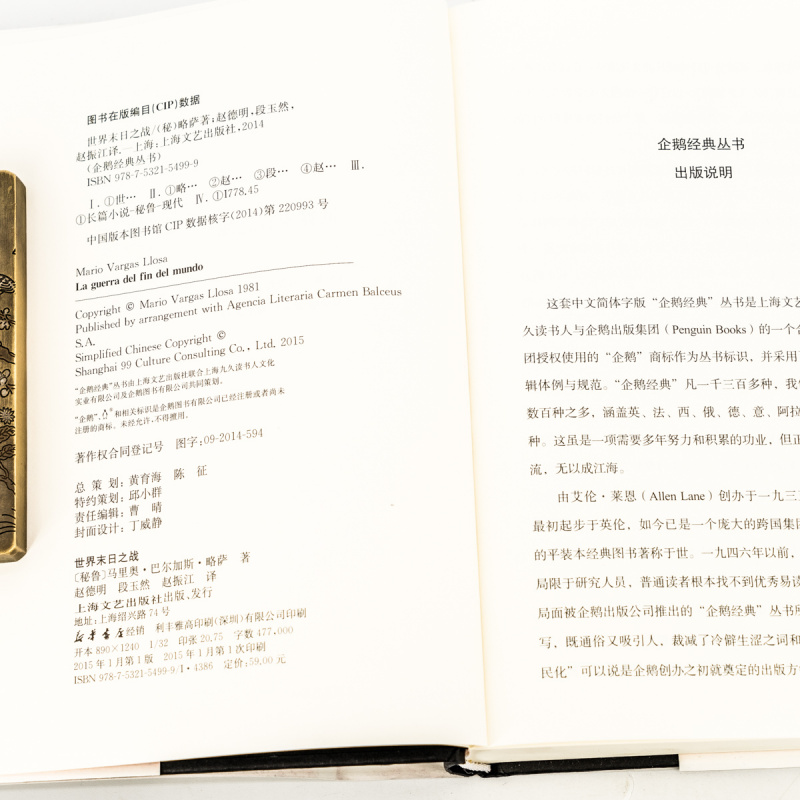 图书在版编目(CIP)数据
世界末日之战/(秘)略萨著;赵德明,段玉然,
赵振江译.—上海:上海文艺出版社,2014
(企鹅经典丛书)
ISBN 978-7-5321-5499-9
Ⅰ.①世… Ⅱ.①略… ②赵… ③段… ④赵… Ⅲ.
①长篇小说-秘鲁-现代 Ⅳ.①I778.45
中国版本图书馆CIP数据核字(2014)第220993号
Mario Vargas Llosa
La guerra del fin del mundo
Copyright © Mario Vargas Llosa 1981
Published by arrangement with Agencia Literaria Carmen Balceus
S.A.
Simplified Chinese Copyright ©
Shanghai 99 Culture Consulting Co., Ltd. 2015
“企鹅经典”丛书由上海文艺出版社联合上海九久读书人文化
实业有限公司及企鹅图书有限公司共同策划。
“企鹅”、®和相关标识是企鹅图书有限公司已经注册或者尚未
注册的商标。未经允许,不得擅用。
著作权合同登记号 图字:09-2014-594
总策划:黄育海 陈征
特约策划:邱小群
责任编辑:曹晴
封面设计:丁威静
世界末日之战
〔秘鲁〕马里奥·巴尔加斯·略萨 著
赵德明 段玉然 赵振江 译
上海文艺出版社出版、发行
地址:上海绍兴路74号
新华书店经销 利丰雅高印刷(深圳)有限公司印刷
开本890×1240 1/32 印张20.75 字数477,000
2015年1月第1版 2015年1月第1次印刷
ISBN 978-7-5321-5499-9/I·4386 定价:59.00元
企鹅经典丛书
出版说明
这套中文简体字版“企鹅经典”丛书是上海文艺
久读书人与企鹅出版集团(Penguin Books)的一个合
团授权使用的“企鹅”商标作为丛书标识,并采用
辑体例与规范。“企鹅经典”凡一千三百多种,我
数百种之多,涵盖英、法、西、俄、德、意、阿拉
种。这虽是一项需要多年努力和积累的功业,但正
流,无以成江海。
由艾伦·莱恩(Allen Lane)创办于一九三
最初起步于英伦,如今已是一个庞大的跨国集团
的平装本经典图书著称于世。一九四六年以前,
局限于研究人员,普通读者根本找不到优秀易读
局面被企鹅出版公司推出的“企鹅经典”丛书所
写,既通俗又吸引人,裁减了冷僻生涩之词和
民化”可以说是企鹅创办之初就奠定的出版方